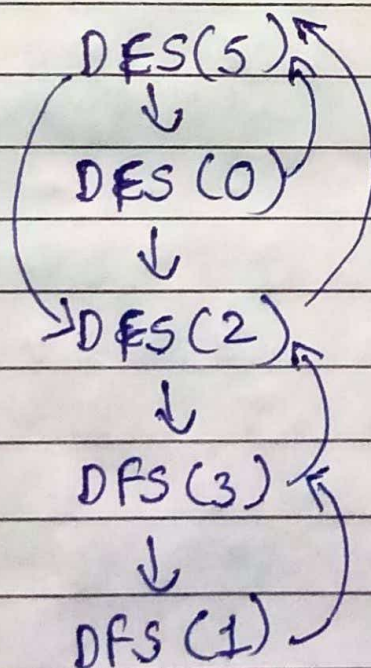 DFS(5)
DFS(0)
DFS(2)
DFS(3)
DFS(1)